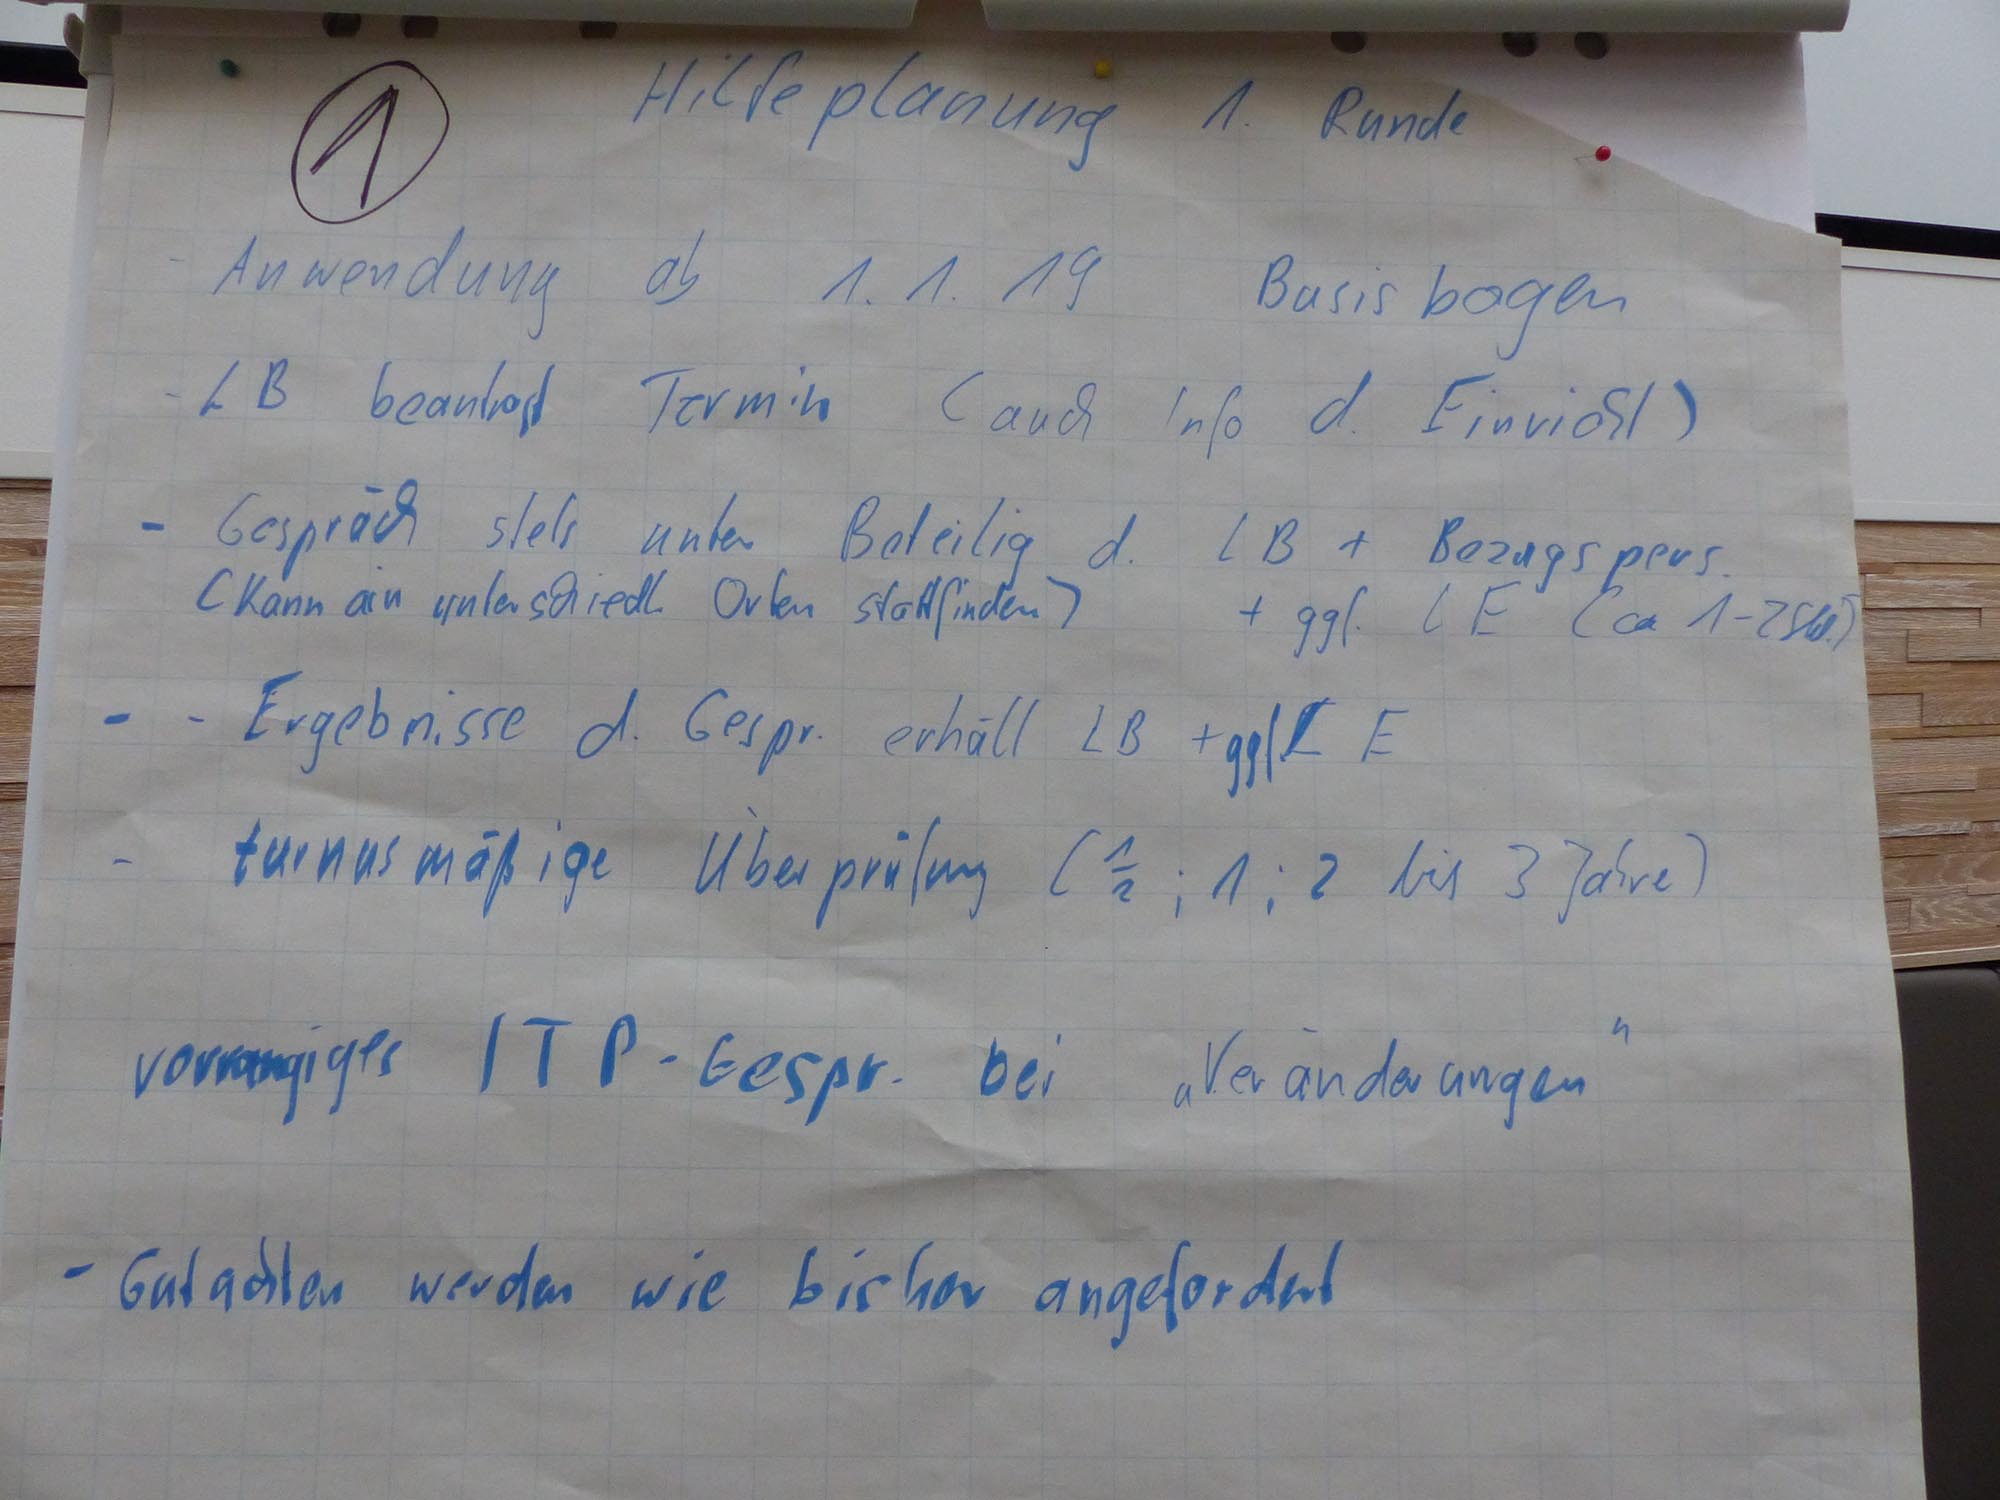 1
Hilfeplanung 1. Runde
- Anwendung ab 1.1.19 Basisbogen
- LB beantragt Termin (auch Info d. Einricht)
- Gespräch stets unter Beteilig d. LB + Bezugspers.
(Kann an unterschiedl Orten stattfinden) + ggf. LE (ca 1-2 Std.)
- - Ergebnisse d. Gespr. erhält LB + ggf LE
- turnusmäßige Überprüfung (1/2 ; 1 ; 2 bis 3 Jahre)
vorrangiges ITP-Gespr. bei „Veränderungen"
- Gutachten werden wie bisher angefordert